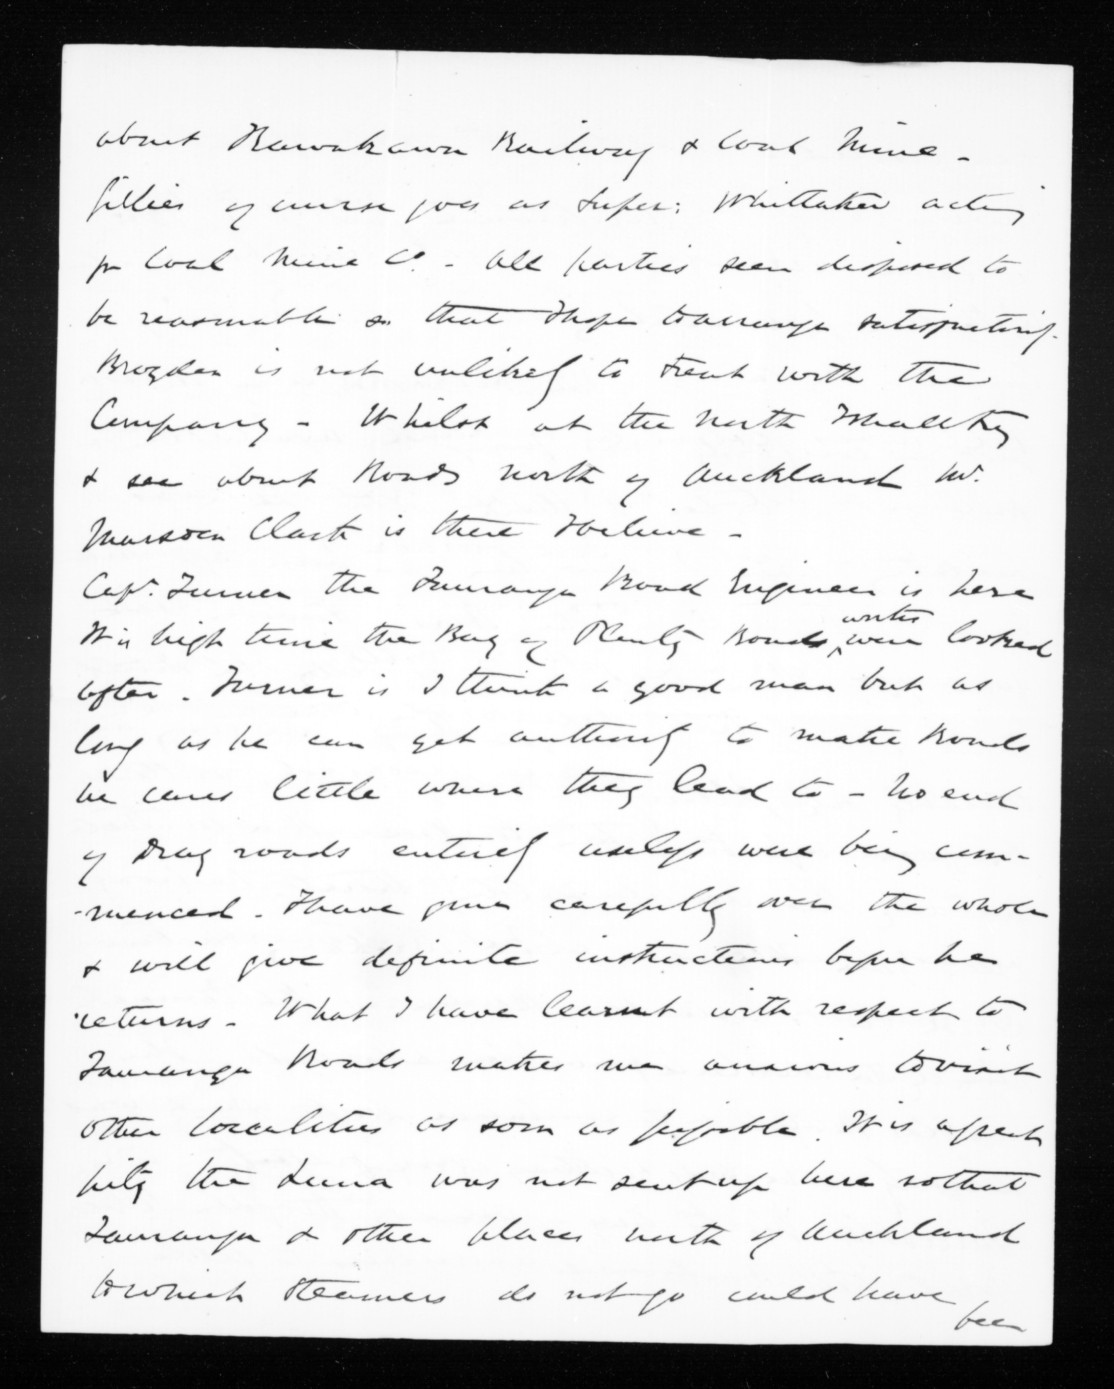 about Kawakawa Railway & Coal Mine -
Gillies of course goes as Super: Whittaker acting
for Coal Mine Co. - All parties seem disposed to
be reasonable so that I hope to arrange satisfactorily.
Brogden is not unlikely to treat with the
Company - Whilst at the North I shall try
& see about Roads north of Auckland Mr.
Marsden Clark is there I believe -
Capt. Turner the Tauranga Road Engineer is here
It is high time the Bay of Plenty Roads works were looked
after. Turner is I think a good man but as
long as he can get authority to make Roads
he cares little where they lead to - No end
of Dray roads entirely useless were being com-
-menced. I have gone carefully over the whole
& will give definite instructions before he
returns - What I have learnt with respect to
Tauranga Roads makes me anxious to visit
other localities as soon as possible. It is a great
pity the Luna was not sent up here so that
Tauranga & other places north of Auckland
to which Steamers do not go could have
been